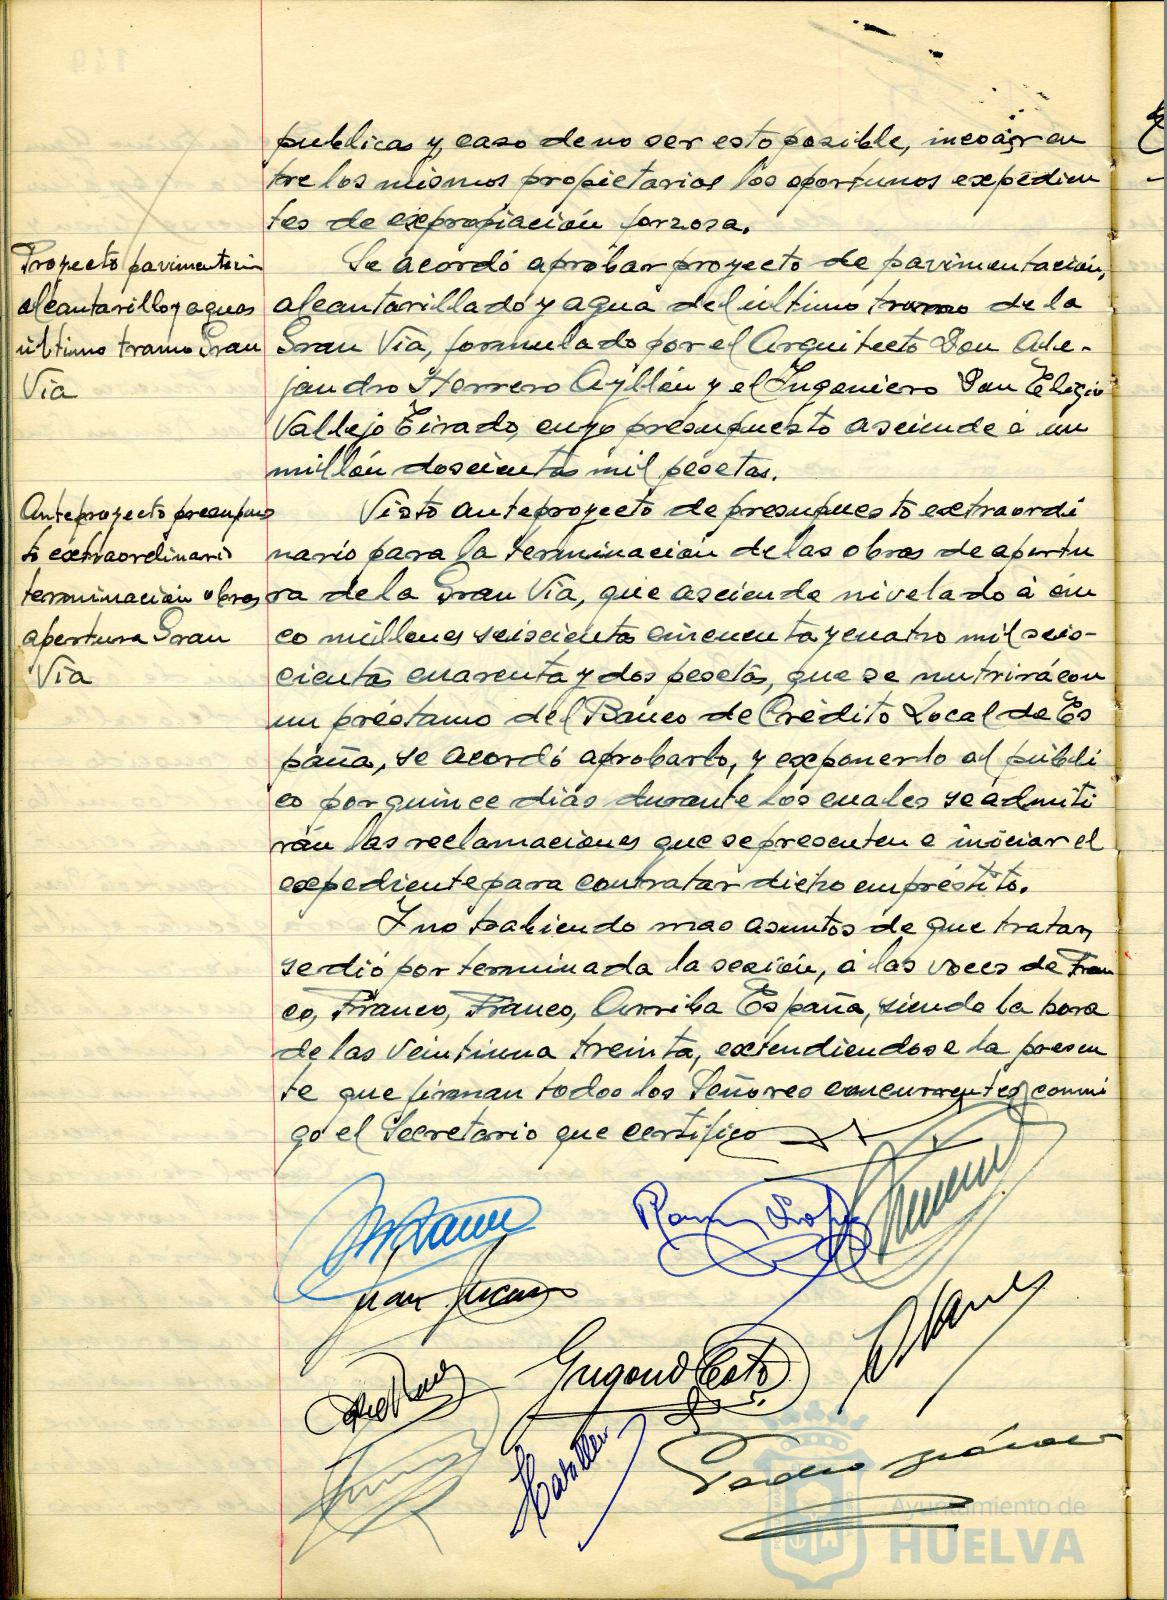 publica y, caso de no ser esto posible, incoar en
tre los mismos propietarios los oportunos expedien
tes de expropiación forzosa.
Proyecto pavimentación
alcantarillo y aguas
último tramo Gran
Vía
Se acordó aprobar proyecto de pavimentación,
alcantarillado y agua del último tramo de la
Gran Vía, formulado por el Arquitecto Don Ale-
jandro Herrero Ayllón y el Ingeniero Don Eligio
Vallejo Tirado, cuyo presupuesto asciende á un
millón doscientas mil pesetas.
Anteproyecto presupues
to extraordinario
terminación obras
apertura Gran
Vía
Visto anteproyecto de presupuesto extraordi
nario para la terminación de las obras de apertu
ra de la Gran Vía, que asciende nivelado á cin
co millones seiscientas cincuenta y cuatro mil seis-
cientas cuarenta y dos pesetas, que se nutrirá con
un préstamo del Banco de Crédito Local de Es
paña, se acordó aprobarlo, y exponerlo al públi
co por quince días durante los cuales se admiti
rán las reclamaciones que se presenten e iniciar el
expediente para contratar dicho empréstito.
Y no habiendo mas asuntos de que tratar,
se dió por terminada la sesión, á las voces de Fran
co, Franco, Franco, Arriba España, siendo la hora
de las veintiuna treinta, extendiendose la presen
te que firman todos los Señores concurrentes conmi
go el Secretario que certifico
Ayuntamiento de
HUELVA